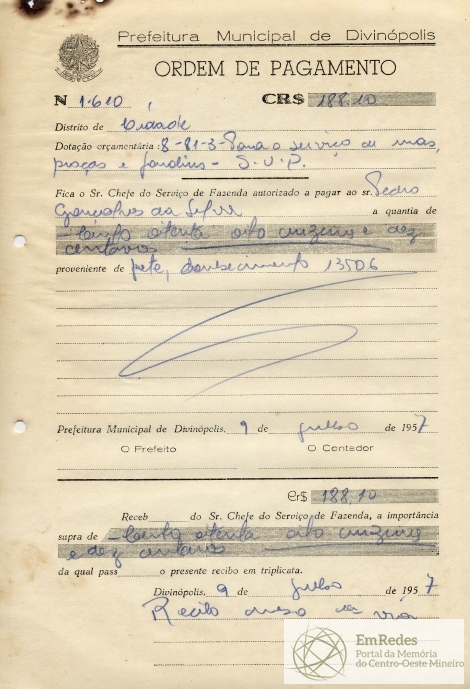 Prefeitura Municipal de Divinópolis
ORDEM DE PAGAMENTO
N 1.610 CR$ 188,10
Distrito de Cidade
Dotação orçamentária: 8-81-3-Para o serviço de ruas,
praças e jardins - S.V.P.
Fica o Sr. Chefe do Serviço de Fazenda autorizado a pagar ao sr. Pedro
Gonçalves da Silva a quantia de
cento oitenta oito cruzeiros e dez
centavos
proveniente de frete, conhecimento 13506
Prefeitura Municipal de Divinópolis, 9 de julho de 1957
O Prefeito O Contador
Cr$ 188,10
Receb do Sr. Chefe do Serviço de Fazenda, a importância
supra de cento oitenta oito cruzeiros
e dez centavos
da qual pass o presente recibo em triplicata.
Divinópolis, 9 de julho de 1957
Recibo
EmRedes
Portal da Memória
do Centro-Oeste Mineiro